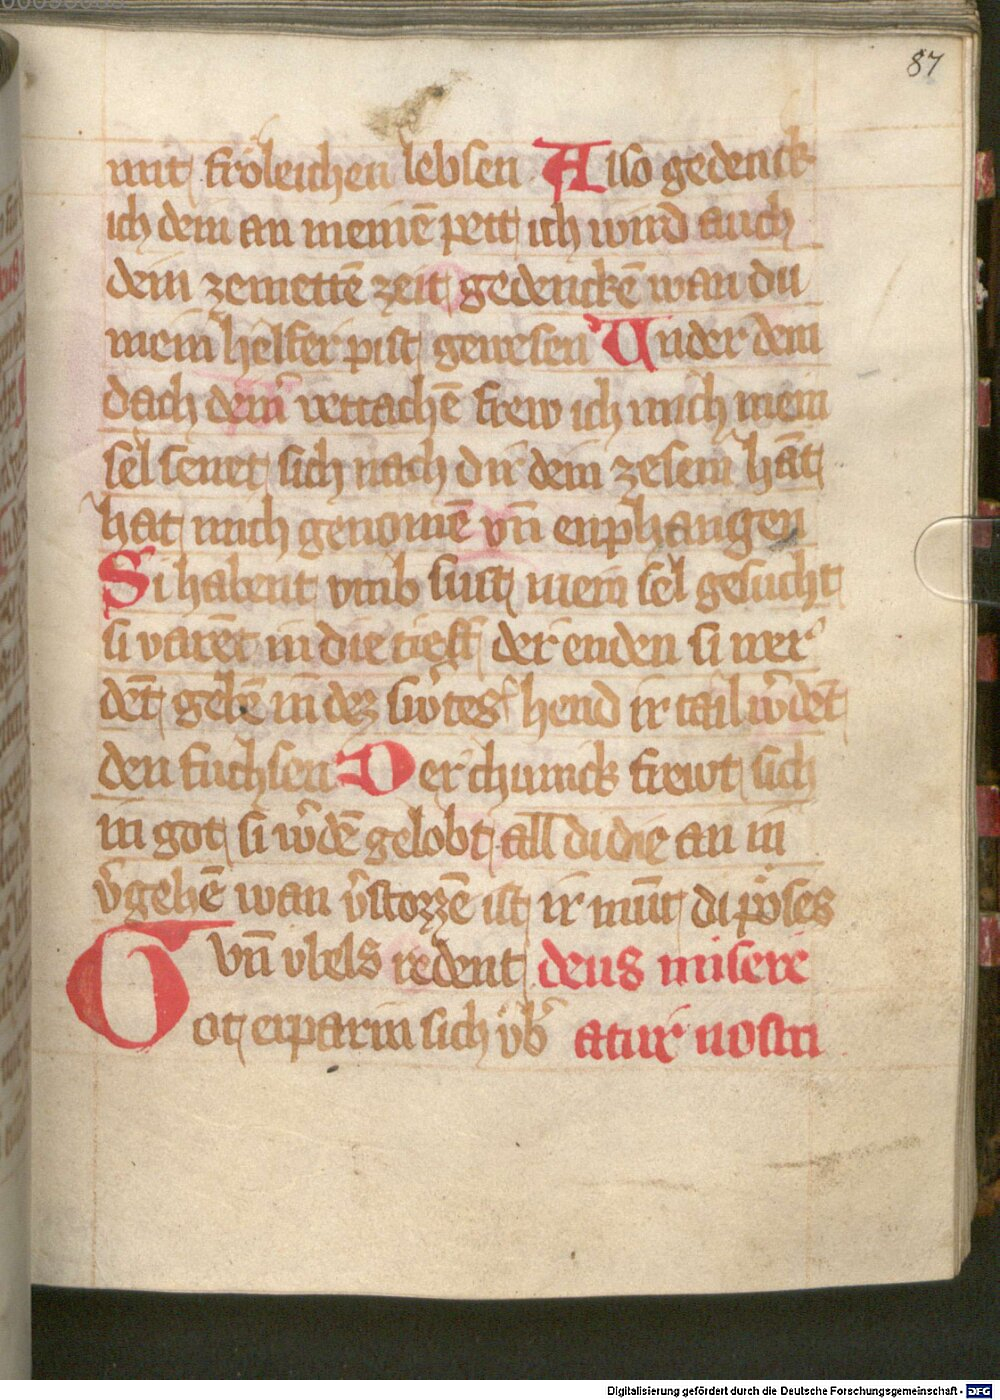 87
mit fröleichen lebsen Also gedenck
ich dein an meinē pett ich wird auch
dein zemettē zeit gedenckē wan du
mein helfer pist gewesen Under dem
dach deinˀ vettachē frew ich mich mein
sel senet sich nach dir dein zesem hāt
hat mich genomē vn̄ enphangen
Si habent vmb sust mein sel gesucht
si varēt in die tieff der erden si wer
dēt gebē in dez sw̓tes hend ir tail w̓dēt
den fuchsen Der chunick frewt sich
in got si w̓dē gelobt all di die an in
v̓gehē wan v̓stozzē ist ir mūt di pöses
vn̄ vbels redent deus misere
Got erparm sich vb̓ atur nostri
Digitalisierung gefördert durch die Deutsche Forschungsgemeinschaft - DFG